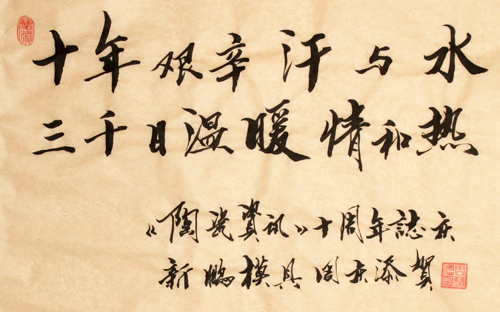 十年艰辛汗与水
三千日温暖情和热
《陶瓷資讯》十周年誌庆
新鹏模具周添賀